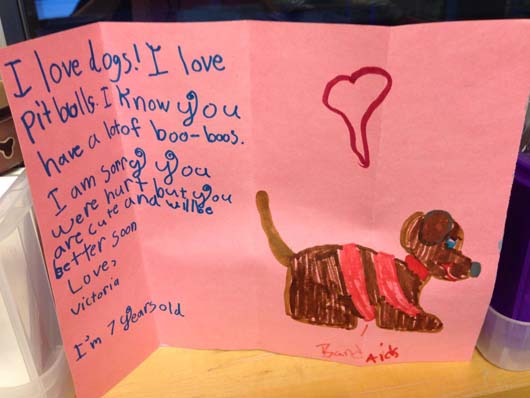 I love dogs! I love
pit bolls. I know you
have a lot of boo-boos.
I am sorry you
were hurt but you
are cute and will be
better soon
Love,
Victoria
I'm 7 years old
Band Aids